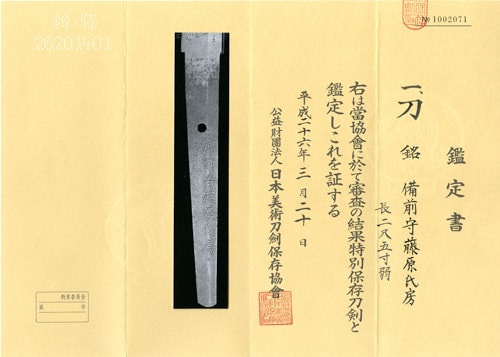 鑑定書
一、刀 銘 備前守藤原氏房
長二尺五寸弱
右は當協會に於て審査の結果特別保存刀剣と
鑑定しこれを証する
平成二十六年三月二十日
公益財團法人 日本美術刀剣保存協會
№ 1002071
教育委員会
第 号